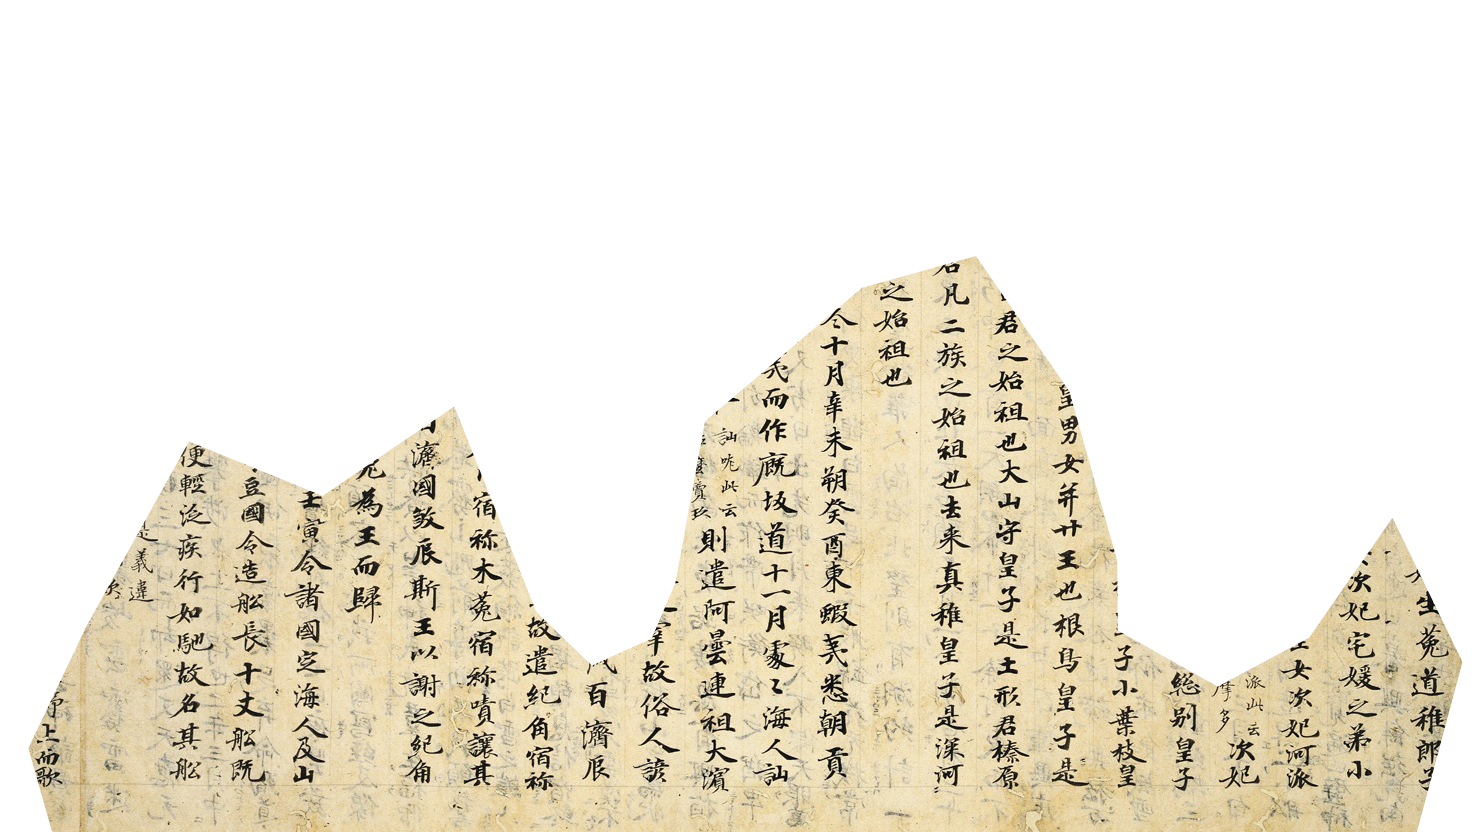 生菟道稚郎子
次妃宅媛之弟小
女次妃河派
派此云
摩多
次妃
総別皇子
子小葉枝皇
皇男女并廿王也根鳥皇子是
君之始祖也大山守皇子是土形君榛原
君凡二族之始祖也去来真稚皇子是深河
之始祖也
令十月辛未朔癸酉東蝦夷悉朝貢
夷而作厩坂道十一月處〻海人訕
訕哤此云
麼賣玖
則遣阿曇連祖大濵
宰故俗人諺
百濟辰
故遣紀角宿祢
宿祢木菟宿祢嘖讓其
濟國敦辰斯王以謝之紀角
為王而歸
壬寅令諸國定海人及山
豆國令造舩長十丈舩既
便輕泛疾行如馳故名其舩
是義違
上而歌